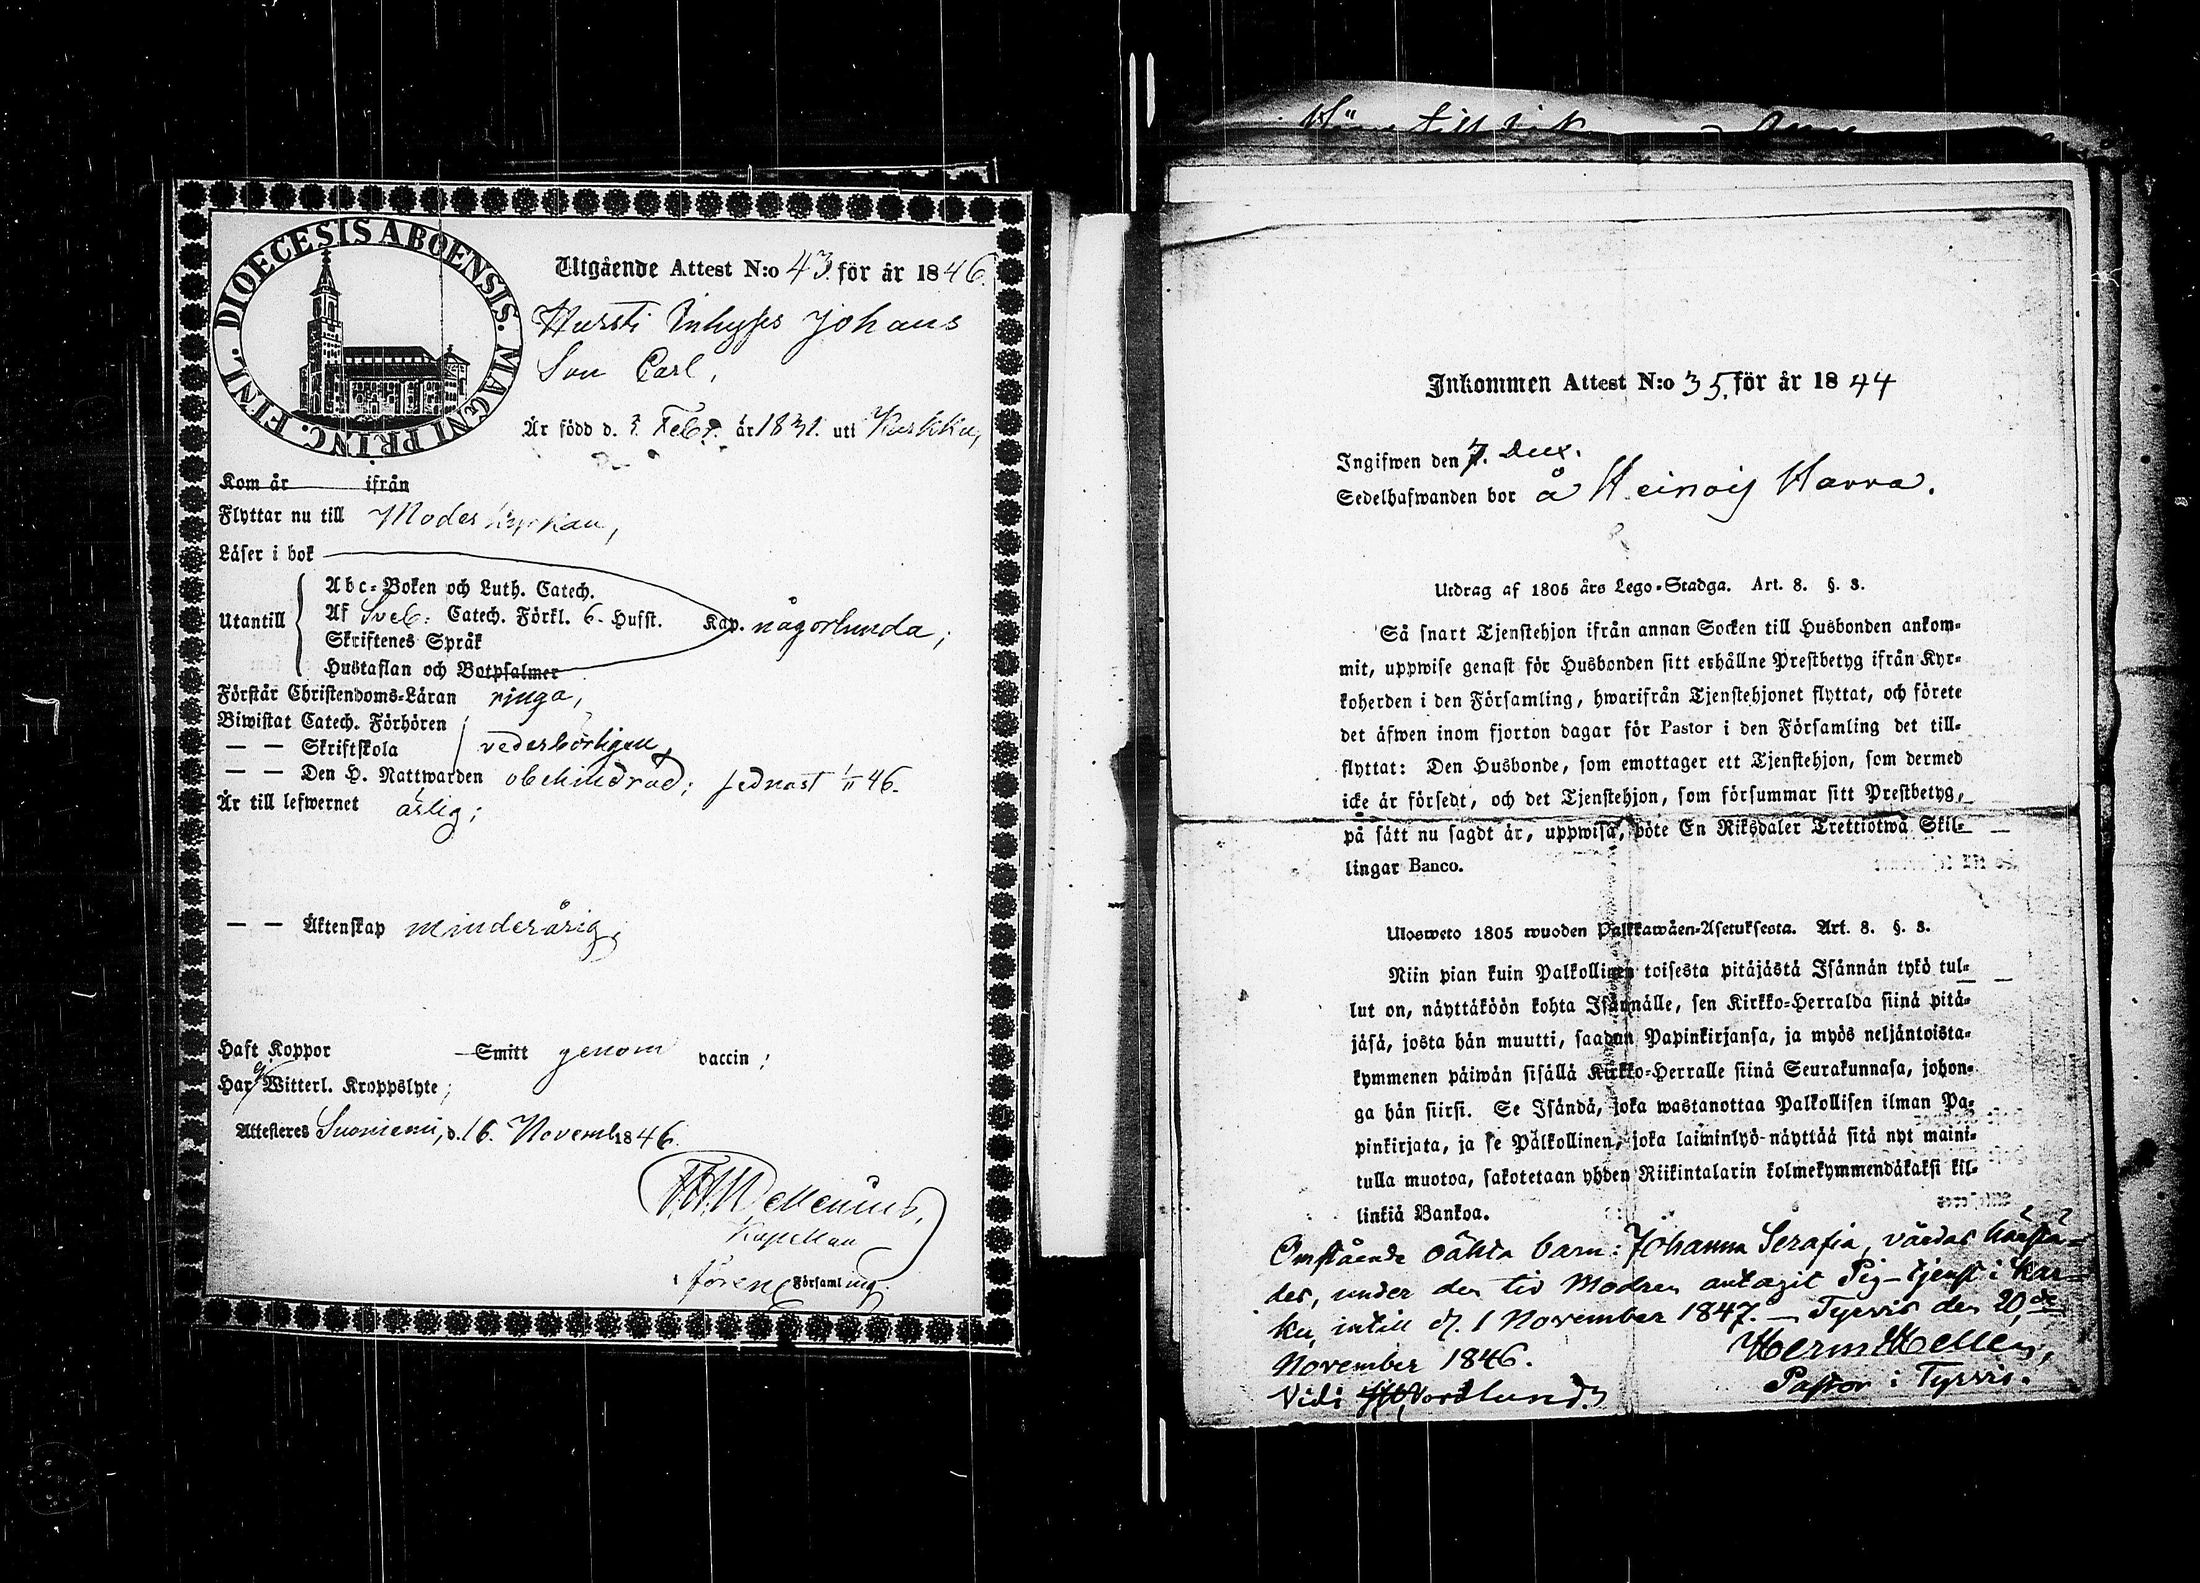 DIOECESIS ABOENSIS. MAGNI PRINC. FINL.
Utgående Attest N:o 43. för år 1846.
Hursti Inhyses Johans
Son Carl,
Är född d. 3. Febr. år 1831. uti Karkku,
Kom år ifrån
Flyttar nu till Moderkyrkan,
Läser i bok
Utantill
Abc-Boken och Luth. Catech.
Af Sveb: Catech. Förkl. 6. Hufst. Kap. någorlunda;
Skriftenes Språk
Hustaflan och Botpsalmer
Förstår Christendoms-Läran ringa,
Biwistat Catech. Förhören
— — Skriftskola vederbörligen,
— — Den H. Nattwarden obehindrad; sednast 1/11 46.
Är till lefwernet ärlig;
— — Äktenskap minderårig,
Haft Koppor Smitt genom vaccin;
Har ej Witterl. Kroppslyte;
Attesteres Suoniemi, d. 16. Novemb 1846.
Kapellan
Församling.
Inkommen Attest N:o 35. för år 1844
Ingifwen den 7. Dec.
Sedelhafwanden bor å Heinoij Harra.
Utdrag af 1805 års Lego-Stadga. Art. 8. §. 3.
Så snart Tjenstehjon ifrån annan Socken till Husbonden ankom-
mit, uppwise genast för Husbonden sitt erhållne Prestbetyg ifrån Kyr-
koherden i den Församling, hwarifrån Tjenstehjonet flyttat, och förete
det äfwen inom fjorton dagar för Pastor i den Församling det till-
flyttat: Den Husbonde, som emottager ett Tjenstehjon, som dermed
icke är försedt, och det Tjenstehjon, som försummar sitt Prestbetyg,
på sätt nu sagdt är, uppwisa, böte En Riksdaler Trettiotwå Skil-
lingar Banco.
Ulosweto 1805 wuoden Palkkawäen-Asetuksesta. Art. 8. §. 3.
Niin pian kuin Palkollinen toisesta pitäjästä Isännän tykö tul-
lut on, näyttäköön kohta Isännälle, sen Kirkko-Herralda siinä pitä-
jäsä, josta hän muutti, saadun Papinkirjansa, ja myös neljäntoista-
kymmenen päiwän sisällä Kirkko-Herralle siinä Seurakunnasa, johon-
ga hän siirsi. Se Isändä, joka wastanottaa Palkollisen ilman Pa-
pinkirjata, ja se Palkollinen, joka laiminlyö näyttää sitä nyt maini-
tulla muotoa, sakotetaan yhden Riikintalarin kolmekymmendäkaksi kil-
linkiä Bankoa.
Omstående oäkta barn: Johanna Serafia, vårdas härstä-
des, under den tid Modren antagit Pig-tjenst i Kar-
ku, intill d. 1 November 1847. — Tyrvis den 20de
November 1846. Herm Hellen,
Vidi Nordlund. Pastor i Tyrvis.